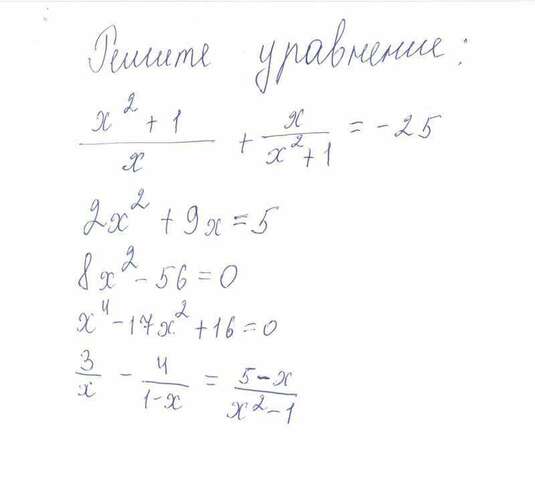 Решите уравнение:
x²+1/x + x/x²+1 = -25
2x²+9x=5
8x²-56=0
x⁴-17x²+16=0
3/x - 4/1-x = 5-x/x²-1